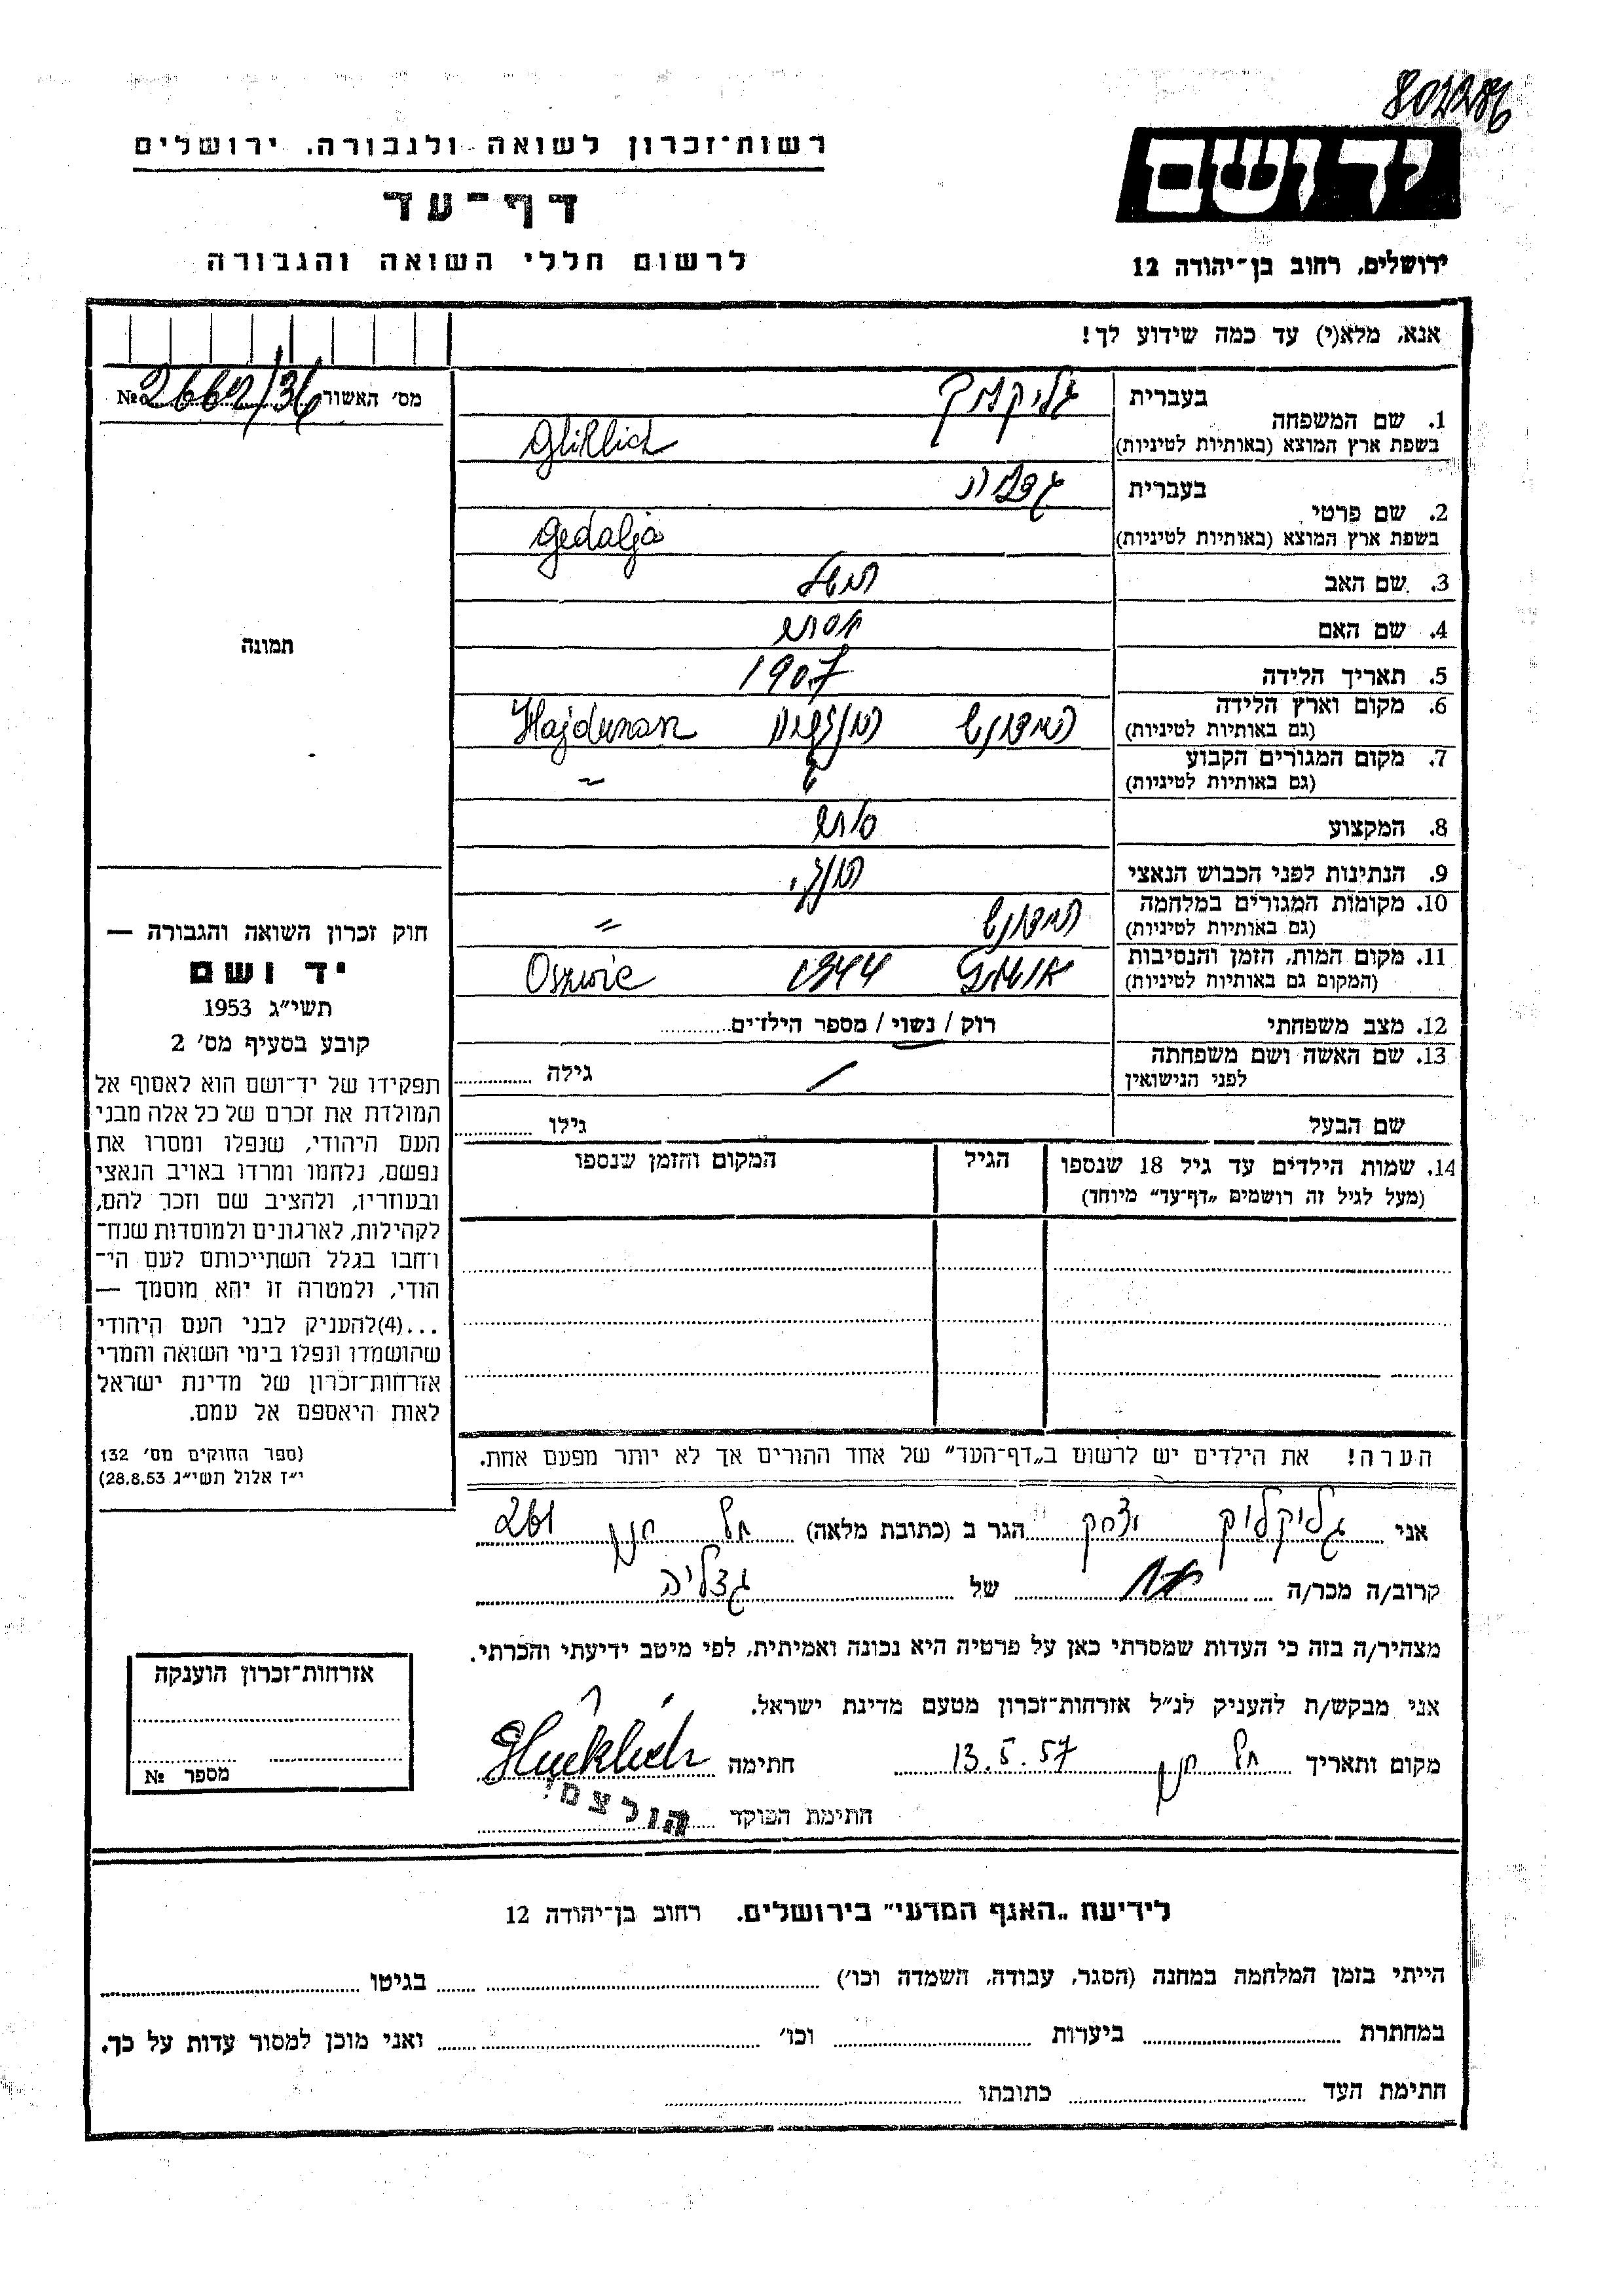 רשות־זכרון לשואה ולגבורה, ירושלים
דף־עד
לרשום חללי השואה והגבורה
יד ושם
ירושלים, רחוב בן־יהודה 12
אנא, מלא(י) עד כמה שידוע לך!
מס׳ האשור № 2662/36
תמונה
1. שם המשפחה בעברית גליקליך
בשפת ארץ המוצא (באותיות לטיניות) Gliklich
2. שם פרטי בעברית גדליה
בשפת ארץ המוצא (באותיות לטיניות) Gedalja
3. שם האב
4. שם האם
5. תאריך הלידה 1907
6. מקום וארץ הלידה (גם באותיות לטיניות) הונגריה Hajdunan
7. מקום המגורים הקבוע (גם באותיות לטיניות) ״
8. המקצוע סוחר
9. הנתינות לפני הכבוש הנאצי הונג׳
10. מקומות המגורים במלחמה (גם באותיות לטיניות) ״
11. מקום המות, הזמן והנסיבות (המקום גם באותיות לטיניות) 1944
12. מצב משפחתי רוק / נשוי / מספר הילדים
13. שם האשה ושם משפחתה לפני הנישואין / גילה
שם הבעל גילו
14. שמות הילדים עד גיל 18 שנספו הגיל המקום והזמן שנספו
(מעל לגיל זה רושמים „דף־עד״ מיוחד)
הערה! את הילדים יש לרשום ב„דף־העד״ של אחד ההורים אך לא יותר מפעם אחת.
חוק זכרון השואה והגבורה —
יד ושם
תשי״ג 1953
קובע בסעיף מס׳ 2
תפקידו של יד־ושם הוא לאסוף אל
המולדת את זכרם של כל אלה מבני
העם היהודי, שנפלו ומסרו את
נפשם, נלחמו ומרדו באויב הנאצי
ובעוזריו, ולהציב שם וזכר להם,
לקהילות, לארגונים ולמוסדות שנח־
רחבו בגלל השתייכותם לעם הי־
הודי, ולמטרה זו יהא מוסמך —
...(4)להעניק לבני העם היהודי
שהושמדו ונפלו בימי השואה והמרי
אזרחות־זכרון של מדינת ישראל
לאות היאספם אל עמם.
(ספר החוקים מס׳ 132
י״ז אלול תשי״ג 28.8.53)
אני גליקליך יצחק הגר ב (כתובת מלאה) תל חנן 261
קרוב/ה מכר/ה אח של גדליה
מצהיר/ה בזה כי העדות שמסרתי כאן על פרטיה היא נכונה ואמיתית, לפי מיטב ידיעתי והכרתי.
אני מבקש/ת להעניק לנ״ל אזרחות־זכרון מטעם מדינת ישראל.
מקום ותאריך תל חנן 13.5.57 חתימה
חתימת הפוקד
אזרחות־זכרון הוענקה
מספר №
לידיעת „האגף המדעי״ בירושלים. רחוב בן־יהודה 12
הייתי בזמן המלחמה במחנה (הסגר, עבודה, השמדה וכו׳) בגיטו
במחתרת ביערות וכו׳ ואני מוכן למסור עדות על כך.
חתימת העד כתובתו